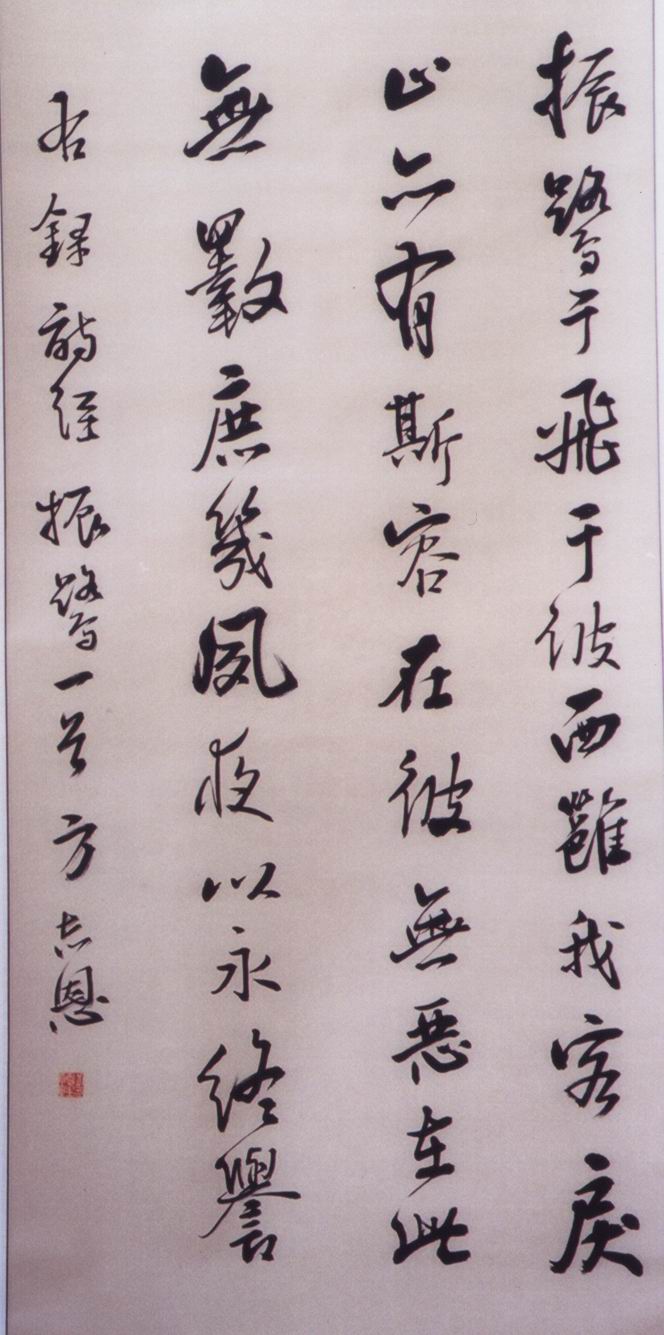 振鷺于飛于彼西雝我客戾
止亦有斯容在彼無惡在此
無斁庶幾夙夜以永終譽
右錄詩經振鷺一首方志恩